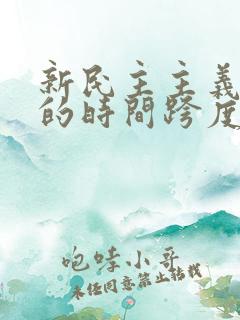 新民主主義
的時間跨度
咆哮小哥
未经同意禁止转载